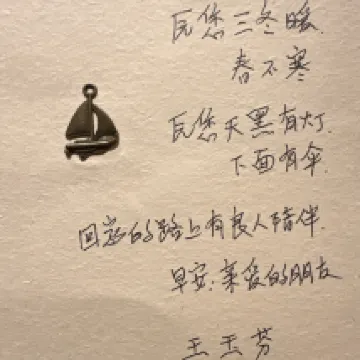 愿您三冬暖.
春不寒
愿您天黑有灯.
下雨有伞.
回家的路上有良人陪伴.
早安,亲爱的朋友
王玉芬